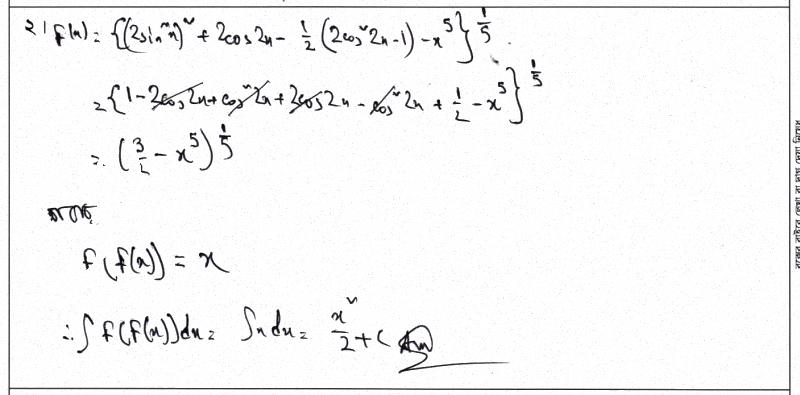 ২। f(x) = {(2sin²x)² + 2cos2x - 1/2 (2cos²2x - 1) - x⁵}^{1/5}
= {1 - 2cos2x + cos²2x + 2cos2x - cos²2x + 1/2 - x⁵}^{1/5}
= (3/2 - x⁵)^{1/5}
f(f(x)) = x
∴ ∫ f(f(x))dx = ∫x dx = x²/2 + C (Ans)